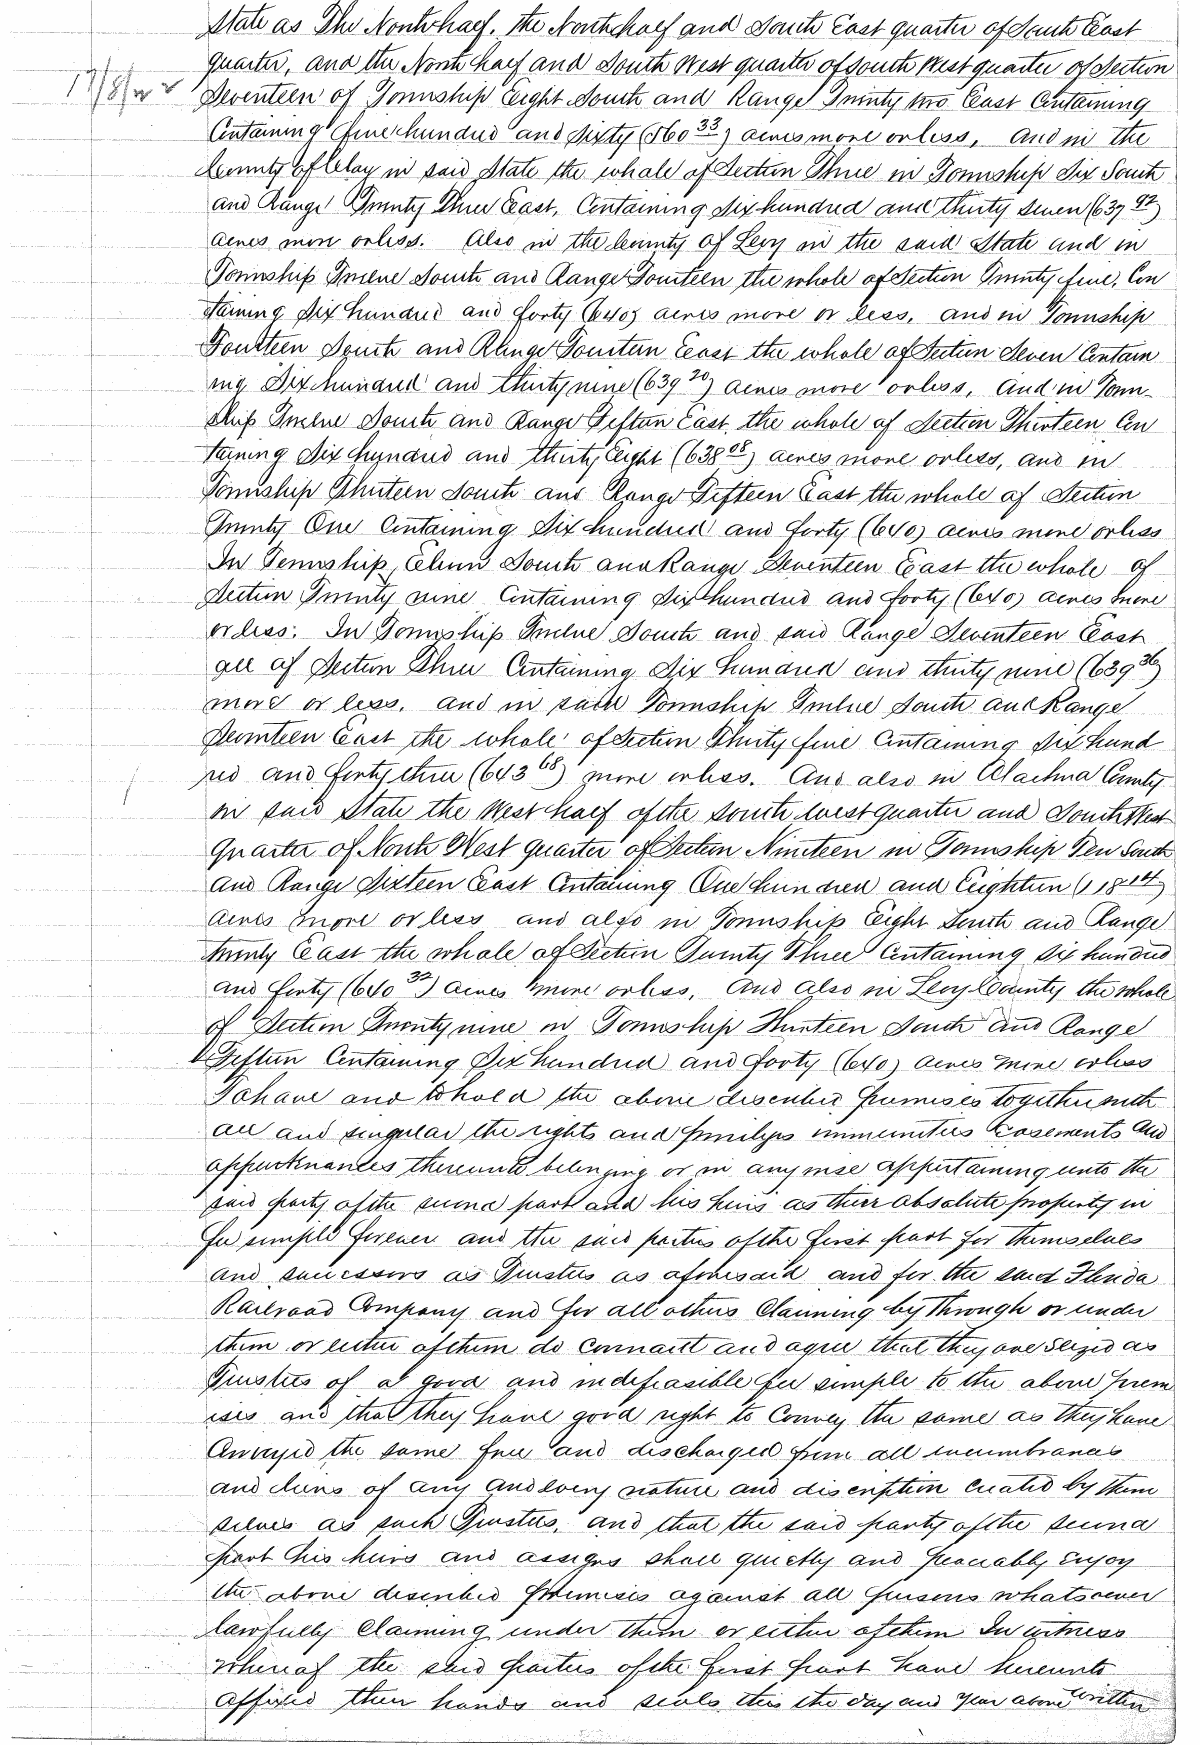 State as The North half, the North half and South East quarter of South East
quarter, and the North half and South West quarter of South West quarter of Section
17/8/22
Seventeen of Township Eight South and Range Twenty two East Containing
Containing five hundred and sixty (560 33) acres more or less, and in the
County of Clay in said State the whole of Section Three in Township Six South
and Range Twenty Three East, Containing Six hundred and thirty seven (637 92)
acres more or less. Also in the County of Levy in the said State and in
Township Twelve South and Range Fourteen the whole of Section Twenty five, Con
taining Six hundred and forty (640) acres more or less, and in Township
Fourteen South and Range Fourteen East the whole of Section Seven Contain
ing Six hundred and thirty nine (639 20) acres more or less, and in Town-
ship Twelve South and Range Fifteen East the whole of Section Thirteen Con
taining Six hundred and thirty Eight (638 08) acres more or less, and in
Township Thirteen South and Range Fifteen East the whole of Section
Twenty One Containing Six hundred and forty (640) acres more or less
In Township Eleven South and Range Seventeen East the whole of
Section Twenty nine Containing Six hundred and forty (640) acres more
or less. In Township Twelve South and said Range Seventeen East
all of Section Three Containing Six hundred and thirty nine (639 36)
more or less, and in said Township Twelve South and Range
Seventeen East the whole of Section Thirty five Containing Six hund
red and forty three (643 68) more or less. And also in Alachua County
in said State the West half of the South West quarter and South West
quarter of North West quarter of Section Nineteen in Township Ten South
and Range Sixteen East Containing One hundred and Eighteen (118 14)
acres more or less and also in Township Eight South and Range
twenty East the whole of Section Twenty Three Containing six hundred
and forty (640 32) acres more or less, and also in Levy County the whole
of Section Twenty nine in Township Thirteen South and Range
Fifteen Containing Six hundred and forty (640) acres more or less
To have and to hold the above described premises together with
all and singular the rights and privileges immunities easements and
appurtenances thereunto belonging or in any wise appertaining unto the
said party of the second part and his heirs as their absolute property in
fee simple forever and the said parties of the first part for themselves
and successors as Trustees as aforesaid and for the said Florida
Railroad Company and for all others Claiming by through or under
them or either of them do covenant and agree that they are seized as
Trustees of a good and indefeasible fee simple to the above prem
ises and that they have good right to Convey the same as they have
Conveyed the same free and discharged from all incumbrances
and liens of any and every nature and discription created by them
selves as such Trustees, and that the said party of the second
part his heirs and assigns shall quietly and peaceably enjoy
the above described premises against all persons whatsoever
lawfully Claiming under them or either of them In witness
whereof the said parties of the first part have hereunto
affixed their hands and seals this the day and year above written